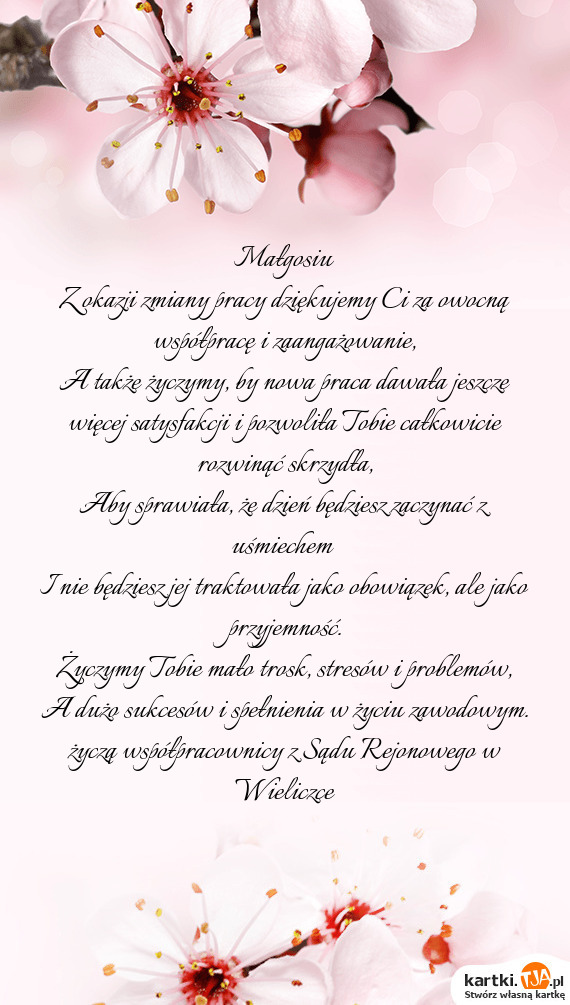 Małgosiu
Z okazji zmiany pracy dziękujemy Ci za owocną
współpracę i zaangażowanie,
A także życzymy, by nowa praca dawała jeszcze
więcej satysfakcji i pozwoliła Tobie całkowicie
rozwinąć skrzydła,
Aby sprawiała, że dzień będziesz zaczynać z
uśmiechem
I nie będziesz jej traktowała jako obowiązek, ale jako
przyjemność.
Życzymy Tobie mało trosk, stresów i problemów,
A dużo sukcesów i spełnienia w życiu zawodowym.
życzą współpracownicy z Sądu Rejonowego w
Wieliczce
kartki.TJA.pl
Stwórz własną kartkę